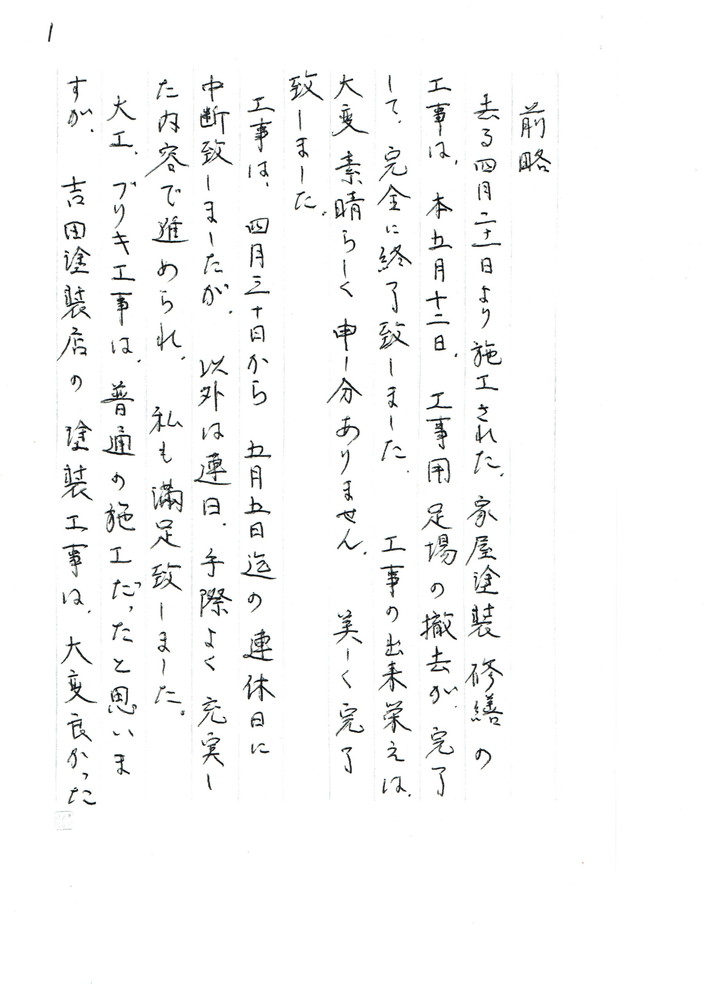 1
前略
去る四月二十一日より施工された、家屋塗装修繕の
工事は、本五月十二日、工事用足場の撤去が、完了
して、完全に終了致しました。工事の出来栄えは、
大変素晴らしく申し分ありません。美しく完了
致しました。
工事は、四月三十日から五月五日迄の連休日に
中断致しましたが、以外は連日、手際よく充実し
た内容で進められ、私も満足致しました。
大工、ブリキ工事は、普通の施工だったと思いま
すが、吉田塗装店の塗装工事は、大変良かった